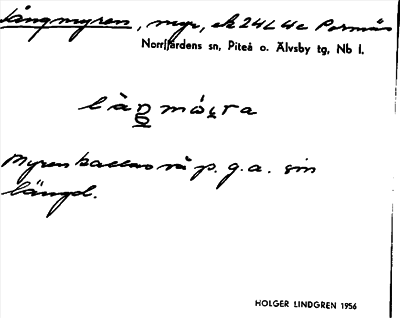 Långmyren, myr, ek 24L4c Pormäs
Norrfjärdens sn, Piteå o. Älvsby tg, Nb l.
Myren kallas så p. g. a. sin
längd.
HOLGER LINDGREN 1956